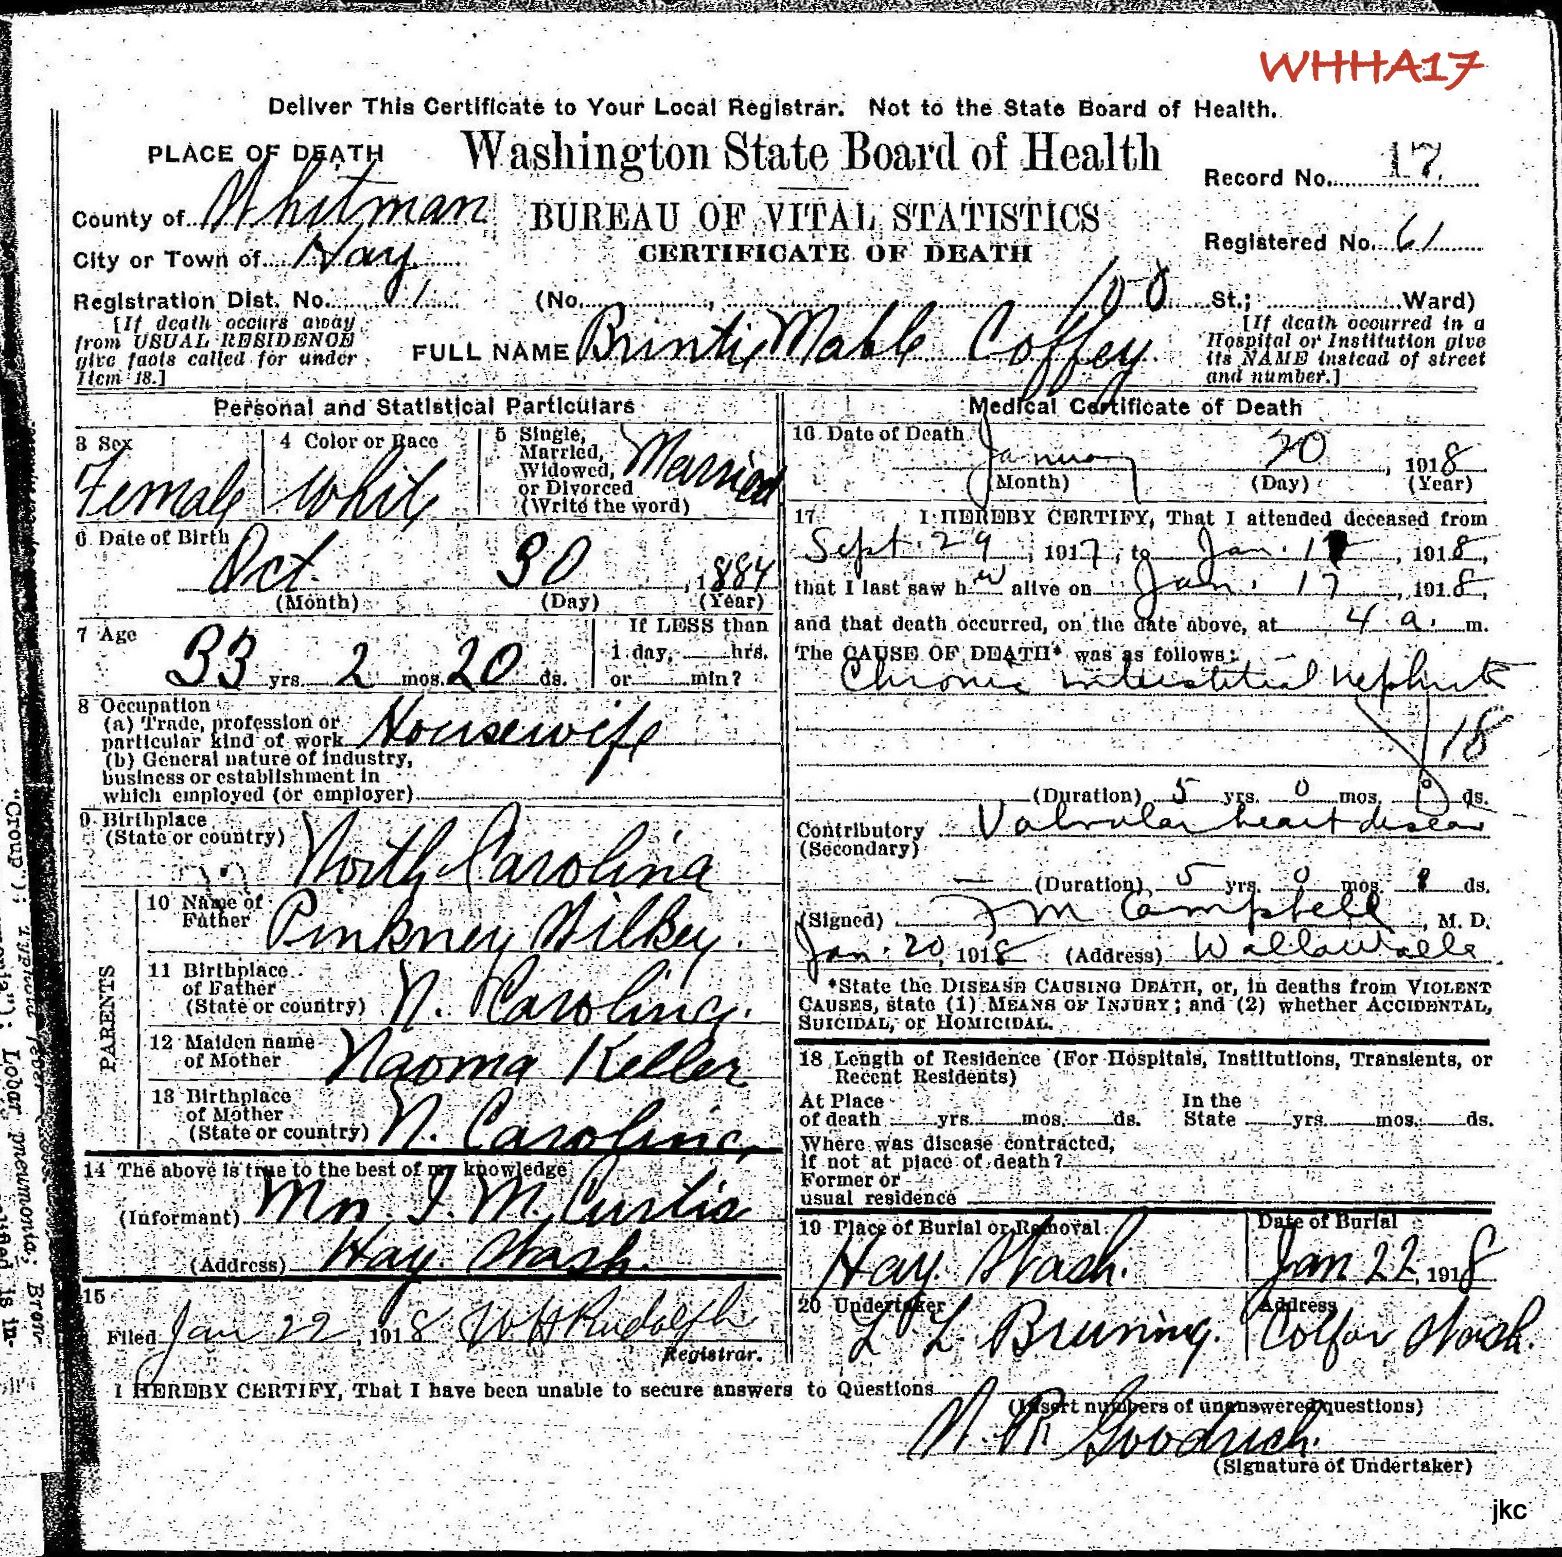 WHHA17
Deliver This Certificate to Your Local Registrar. Not to the State Board of Health.
PLACE OF DEATH
Washington State Board of Health
Record No. 17
County of Whitman
BUREAU OF VITAL STATISTICS
City or Town of Hay
CERTIFICATE OF DEATH
Registered No. 61
Registration Dist. No. 1 (No. , 100 St.; Ward)
[If death occurs away from USUAL RESIDENCE give facts called for under Item 18.]
FULL NAME Brintie Mable Coffey
[If death occurred in a Hospital or Institution give its NAME instead of street and number.]
Personal and Statistical Particulars
3 Sex Female
4 Color or Race White
5 Single, Married, Widowed, or Divorced (Write the word) Married
6 Date of Birth Oct. 30, 1884
(Month) (Day) (Year)
7 Age 33 yrs. 2 mos. 20 ds.
If LESS than 1 day, hrs. or min?
8 Occupation
(a) Trade, profession or particular kind of work Housewife
(b) General nature of industry, business or establishment in which employed (or employer)
9 Birthplace (State or country) North Carolina
PARENTS
10 Name of Father Pinkney Wilkey.
11 Birthplace of Father (State or country) N. Carolina.
12 Maiden name of Mother Naoma Keller
13 Birthplace of Mother (State or country) N. Carolina
14 The above is true to the best of my knowledge
(Informant) Mrs. I. M. Curtis
(Address) Hay. Wash.
15
Filed Jan 22, 1918 W H Rudolph
Registrar.
Medical Certificate of Death
16 Date of Death January 20, 1918
(Month) (Day) (Year)
17 I HEREBY CERTIFY, That I attended deceased from
Sept. 29, 1917, to Jan. 17, 1918,
that I last saw her alive on Jan. 17, 1918,
and that death occurred, on the date above, at 4 a. m.
The CAUSE OF DEATH* was as follows:
Chronic interstitial nephritis
18
(Duration) 5 yrs. 0 mos. 0 ds.
Contributory (Secondary) Valvular heart disease
(Duration) 5 yrs. 0 mos. ds.
(Signed) F M Campbell, M. D.
Jan. 20, 1918 (Address) Walla Walla.
*State the DISEASE CAUSING DEATH, or, in deaths from VIOLENT
CAUSES, state (1) MEANS OF INJURY; and (2) whether ACCIDENTAL,
SUICIDAL, or HOMICIDAL.
18 Length of Residence (For Hospitals, Institutions, Transients, or Recent Residents)
At Place of death yrs. mos. ds. In the State yrs. mos. ds.
Where was disease contracted, if not at place of death?
Former or usual residence
19 Place of Burial or Removal Hay. Wash.
Date of Burial Jan 22, 1918
20 Undertaker L L Bruning.
Address Colfax Wash.
I HEREBY CERTIFY, That I have been unable to secure answers to Questions
(Insert numbers of unanswered questions)
N. R. Goodrich.
(Signature of Undertaker)
jkc